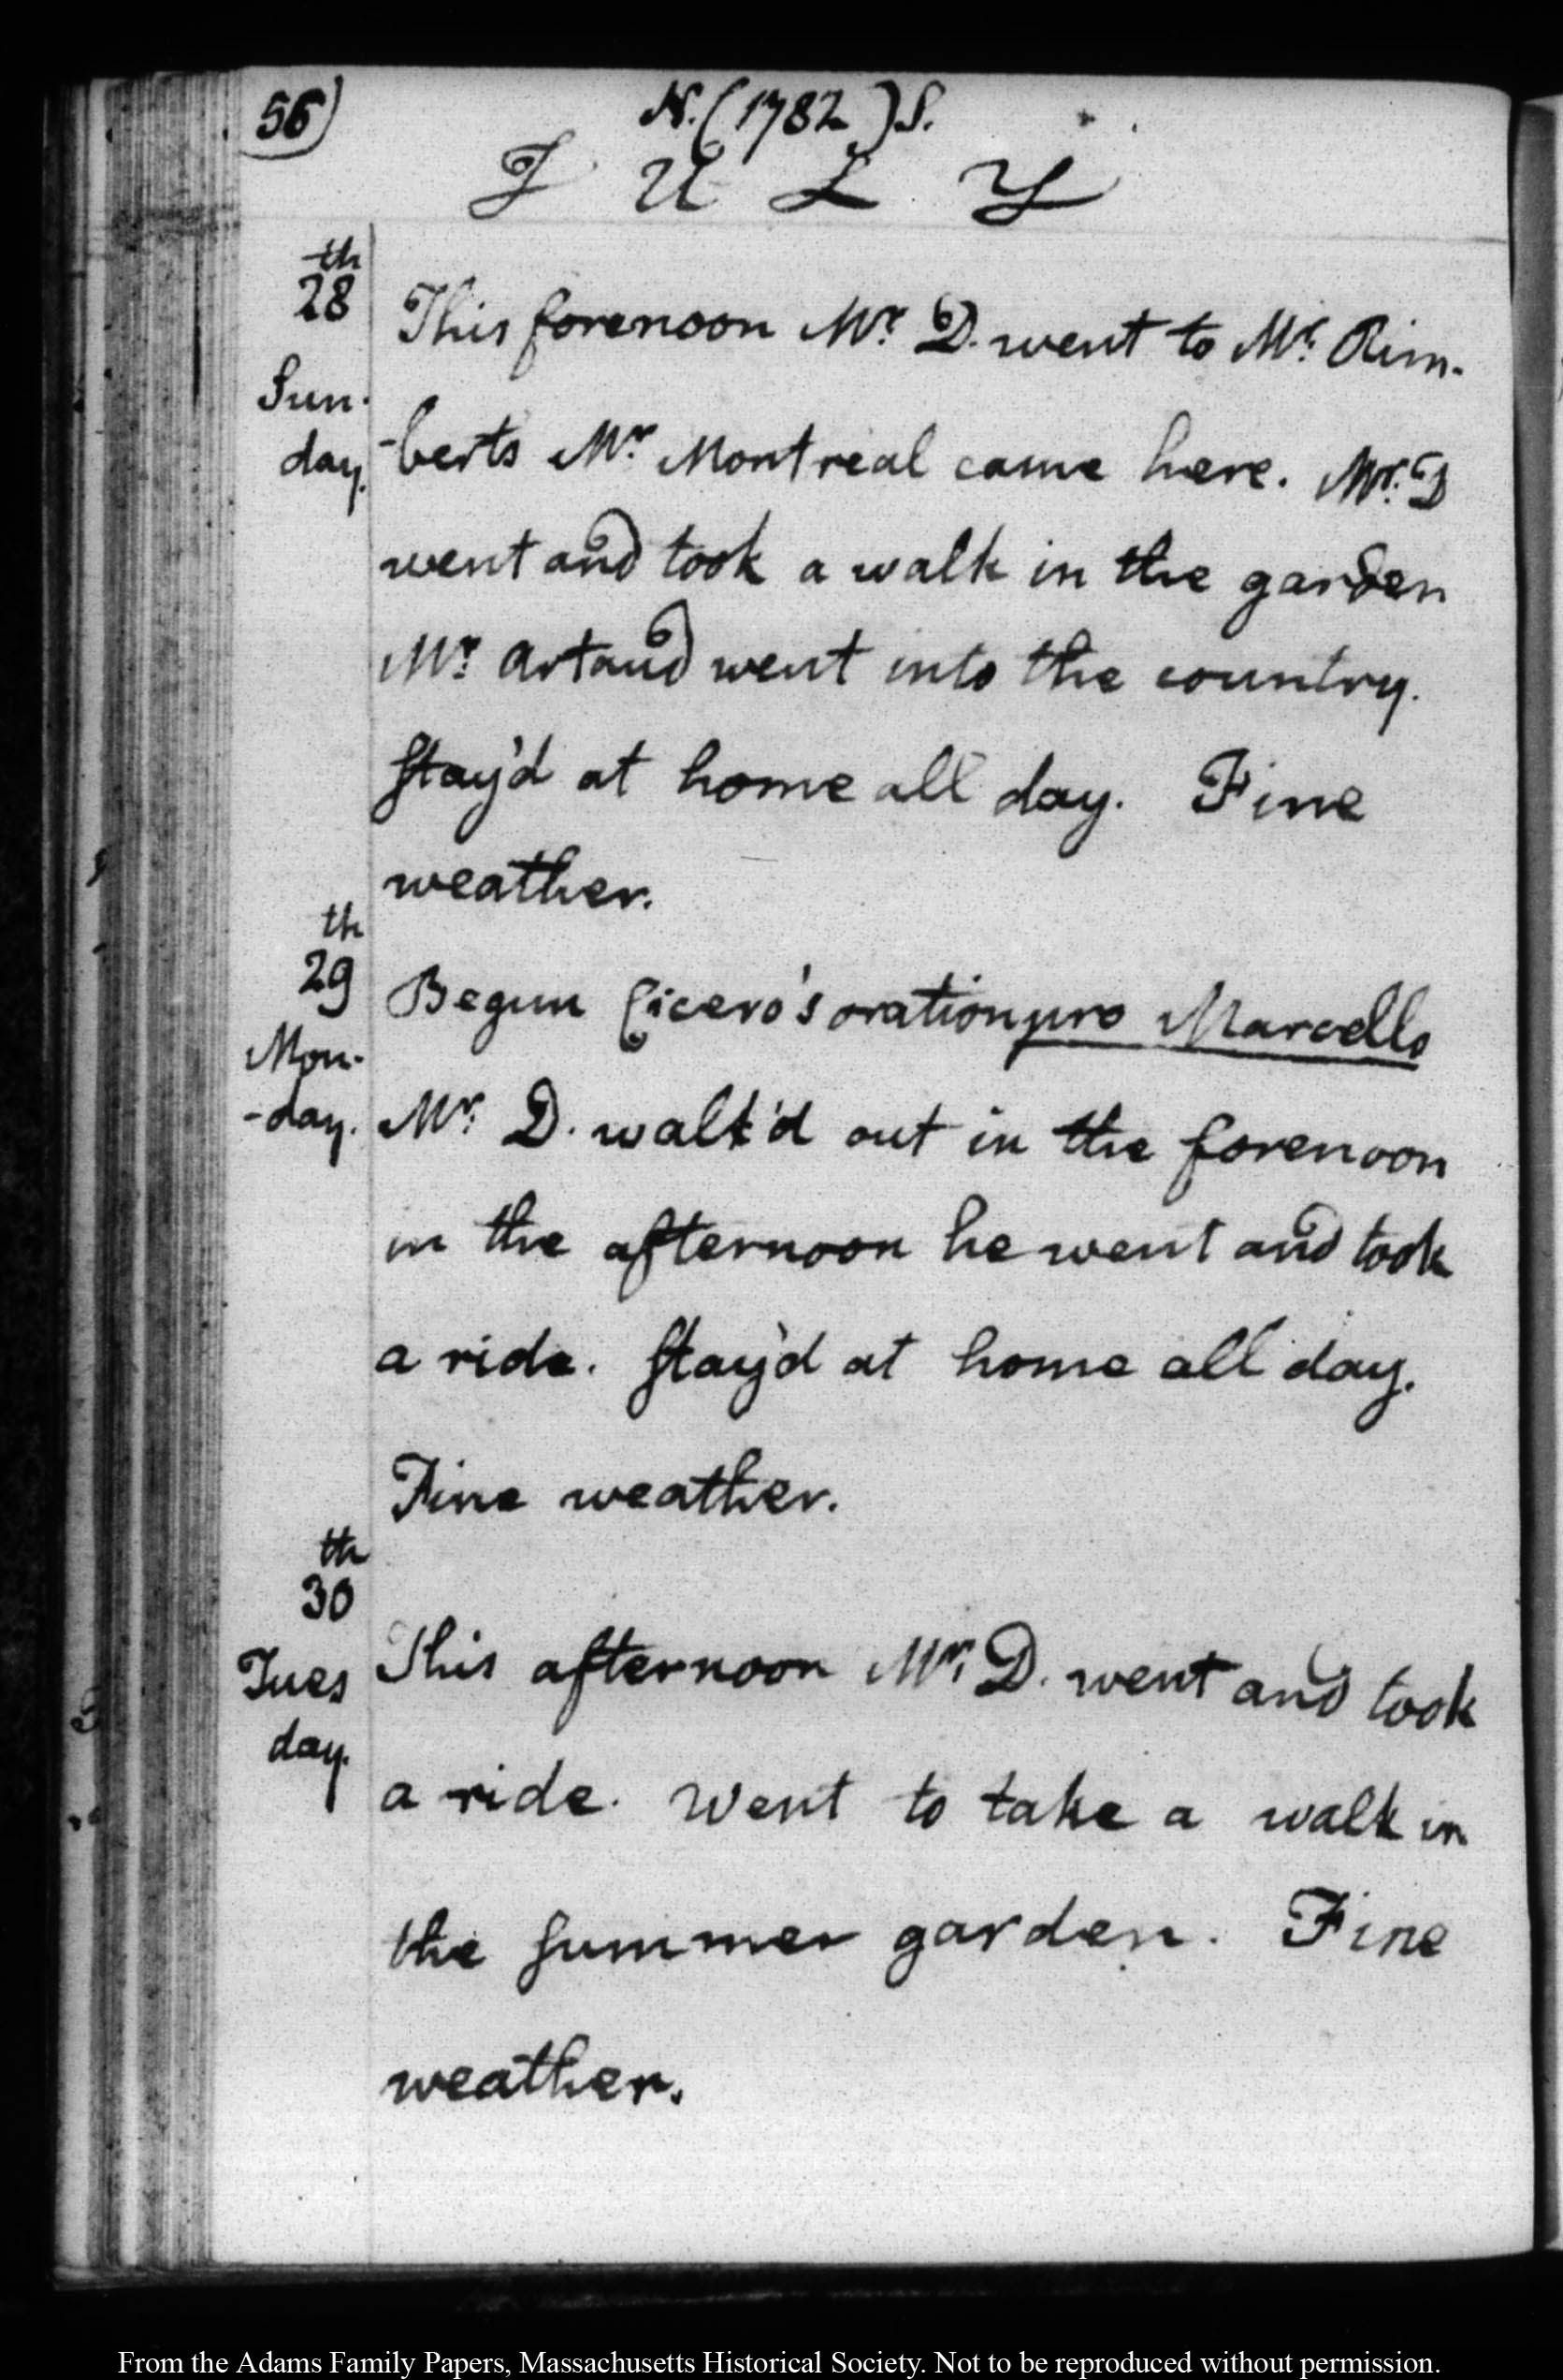 56)
N. (1782) S.
JULY
th
28
Sun-
day.
This forenoon Mr. D. went to Mr. Rim-
-berts Mr. Montreal came here. Mr. D
went and took a walk in the garden
Mr. Artaud went into the country.
Stay'd at home all day. Fine
weather.
th
29
Mon-
-day.
Begun Cicero's oration pro Marcello
Mr. D. walk'd out in the forenoon
in the afternoon he went and took
a ride. Stay'd at home all day.
Fine weather.
th
30
Tues
day.
This afternoon Mr. D. went and took
a ride. Went to take a walk in
the Summer garden. Fine
weather.
From the Adams Family Papers, Massachusetts Historical Society. Not to be reproduced without permission.